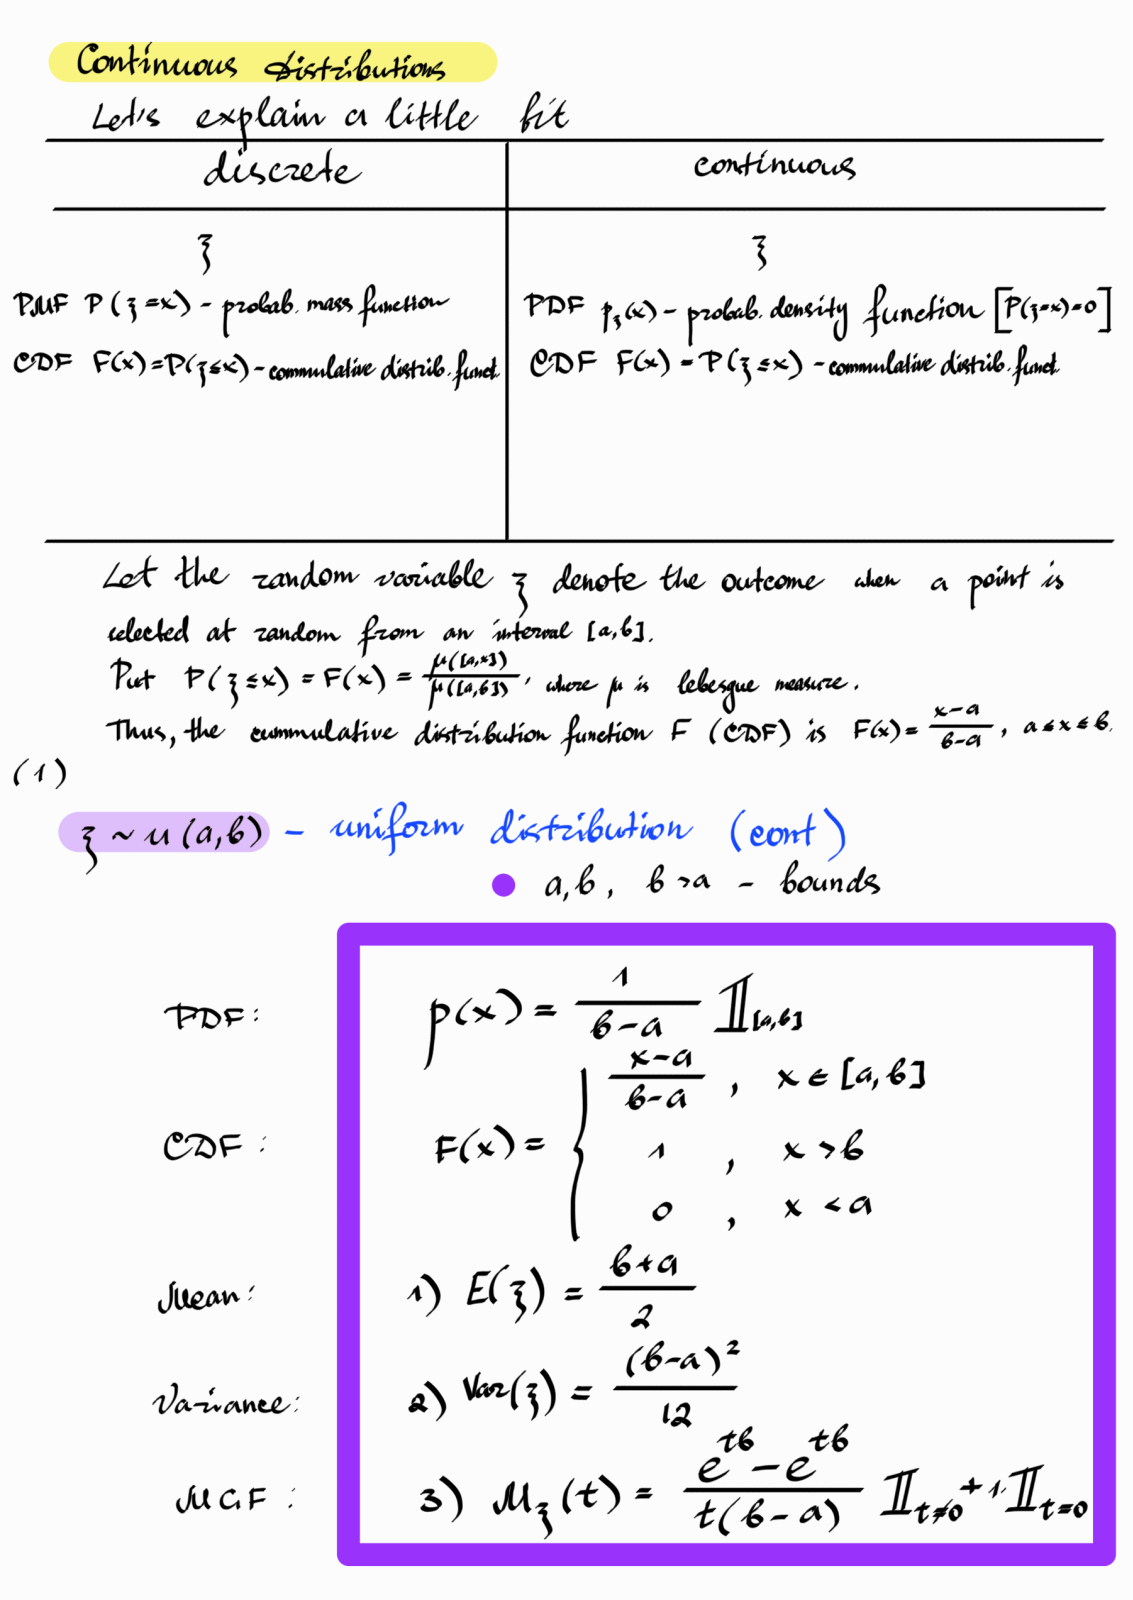 Continuous distributions
Let's explain a little bit
discrete continuous
ξ ξ
PMF P(ξ=x) - probab. mass function
PDF p_ξ(x) - probab. density function [P(ξ=x)=0]
CDF F(x)=P(ξ≤x) - commulative distrib. funct.
CDF F(x) = P(ξ≤x) - commulative distrib. funct.
Let the random variable ξ denote the outcome when a point is
selected at random from an interval [a,b].
Put P(ξ≤x) = F(x) = μ([a,x])/μ([a,b]), where μ is lebesgue measure.
Thus, the cummulative distribution function F (CDF) is F(x) = (x-a)/(b-a), a≤x≤b.
(1)
ξ ~ U(a,b) - uniform distribution (cont)
a,b, b>a - bounds
PDF: p(x) = 1/(b-a) 𝟙_[a,b]
CDF: F(x) = { (x-a)/(b-a), x∈[a,b]
1, x>b
0, x<a
Mean: 1) E(ξ) = (b+a)/2
Variance: 2) Var(ξ) = (b-a)²/12
MGF: 3) M_ξ(t) = (e^tb - e^tb)/(t(b-a)) 𝟙_t≠0 + 1·𝟙_t=0